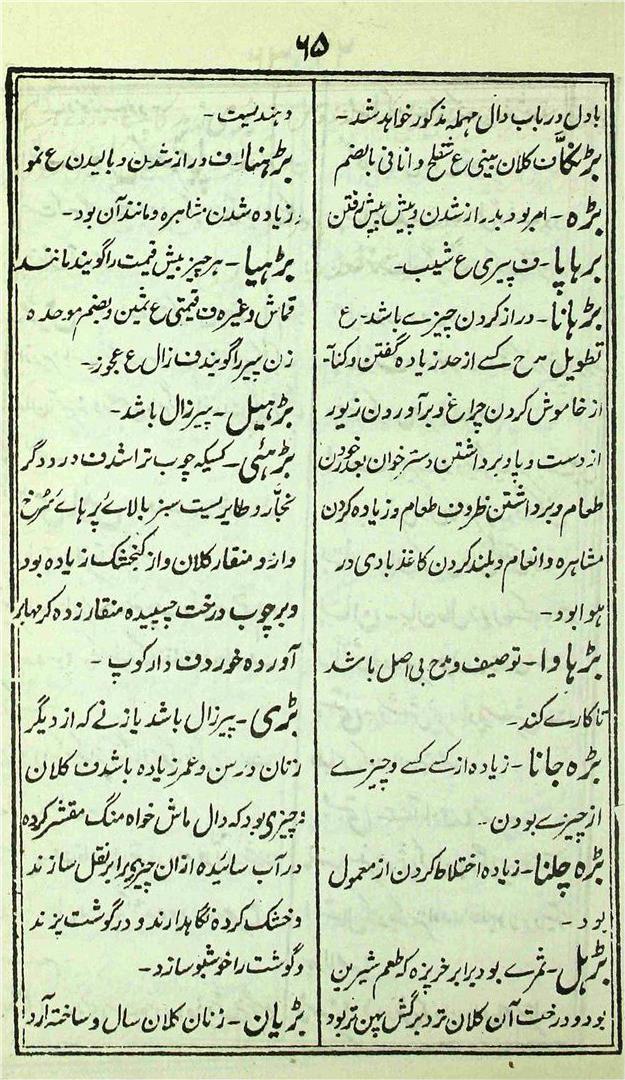 ۶۵
بادل در باب دال مہملہ مذکور خواہد شد۔
بڑنکا۔ف کلان بینی ع و انانی بالضم
بڑہ۔ امر بود بدراز شدن و پیش پیش رفتن
بڑہاپا۔ف پیری ع شیب۔
بڑہانا۔ دراز کردن چیزے باشد۔ ع
تطویل مدح کسے از حد زیادہ گفتن و کنایہ
از خاموش کردن چراغ و برآوردن زیور
از دست و پا و برداشتن دسترخوان بعد خوردن
طعام و برداشتن ظروف طعام و زیادہ کردن
مشاہرہ و انعام و بلند کردن کاغذ بادی در
ہوا بود۔
بڑہاوا۔ توصیف و مدح بی اصل باشد
تا کارے کند۔
بڑہ جانا۔ زیادہ از کسے کسے و چیزے
از چیزے بودن۔
بڑہ چلنا۔ زیادہ اختلاط کردن از معمول
بود۔
بڑہل۔ ثمرے بود برابر خرپزہ کہ طعم شیرین
بود و درخت آن کلان تر و برگش پہن تر بود
و ہندیست۔
بڑہنا۔ ف دراز شدن و بالیدن ع نمو
زیادہ شدن مشاہرہ و مانند آن بود۔
بڑہیا۔ ہر چیز بیش قیمت را گویند مانند
قماش و غیرہ ف قیمتی ع ثمین و بضم موحدہ
زن پیر را گویند ف زال ع عجوز۔
بڑہیل۔ پیر زال باشد۔
بڑہئی۔ کسیکہ چوب تراشد ف درودگر
نجّار و طایریست سبز بالاے پرہاے سُرخ
وارد و منقار کلان و از کنجشک زیادہ بود
و بر چوب درخت چسپیدہ منقار زدہ کرمہا بر
آوردہ خورد ف دارکوب۔
بڑی۔ پیر زال باشد یا زنے کہ از دیگر
زنان در سن و عمر زیادہ باشد ف کلان
و چیزی بود کہ دال ماش خواہ منگ مقشر کردہ
در آب سائیدہ ازان چیزی برابر نقل سازند
و خشک کردہ نگاہدارند و در گوشت پزند
و گوشت را خوشبو سازد۔
بڑیان۔ زنان کلان سال و ساختہ آرد